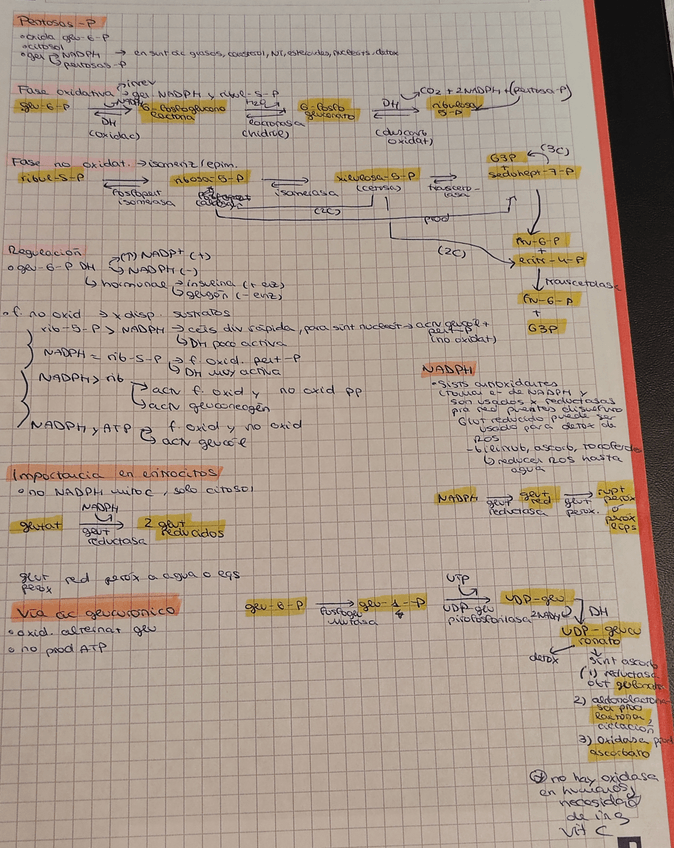 Pentosas-P
• oxida glu-6-P
• citosol
• gen NADPH → en sint ác grasos, colesterol, NT, esteroides, nucleots, detox
pentosas-P
Fase oxidativa → irrev
→ gen NADPH y ribul-5-P
glu-6-P NADPH DH (oxidac) 6-fosfoglucono lactona H2O lactonasa (hidról) 6-fosfo gluconato DH (descarb oxidat) ribulosa 5-P
CO2 + 2NADPH + (pentosa-P)
Fase no oxidat. → isomeriz/epim.
ribul-5-P fosfopent isomerasa ribosa-5-P isomerasa xilulosa-5-P (cetosa) transceto- lasa G3P + sedohept-7-P
(3C)
(2C)
prod
(2C)
fru-6-P
+
eritr-4-P
transcetolasa
fru-6-P
+
G3P
Regulación
• glu-6-P DH (↑) NADP+ (+)
NADPH (-)
hormonal → insulina (+ enz)
glucgón (- enz)
• f. no oxid → x disp. sustratos
rib-5-P > NADPH → céls div rápida, para sint nucleot → actv glucól +
pent-P
(no oxidat)
DH poco activa
NADPH = rib-5-P → f. oxid. pent-P
DH muy activa
NADPH > rib
actv f. oxid y no oxid pp
actv gluconeogén
NADPH y ATP f. oxid y no oxid
actv glucól
NADPH
• Sists antioxidantes
(toman e- de NADPH y
son usados x reductasas
pra red puentes disulfuro
Glut reducido puede ser
usado para detox de
ROS
- bilirrub, ascorb, tocoferol
reducen ROS hasta
agua
NADPH glut reductasa glut red glut perox. H2O perox o perox lips
Importancia en eritrocitos
• no NADPH mitoc, solo citosol
glutat NADPH glut reductasa 2 glut reducidos
glut red perox a agua o eqs
perox
Vía ác glucurónico
• oxid. alternat glu
• no prod ATP
glu-6-P fosfoglu mutasa glu-1-P UTP UDP-glu pirofosforilasa UDP-glu
2NADH DH
UDP-glucu
ronato
detox
sint ascorb
(1) reductasa
obt gulonato
2) aldonolactona-
sa prod
lactona,
ciclación
3) Oxidasa prod
ascorbato
no hay oxidasa
en humanos,
necesidad
de ing
vit C